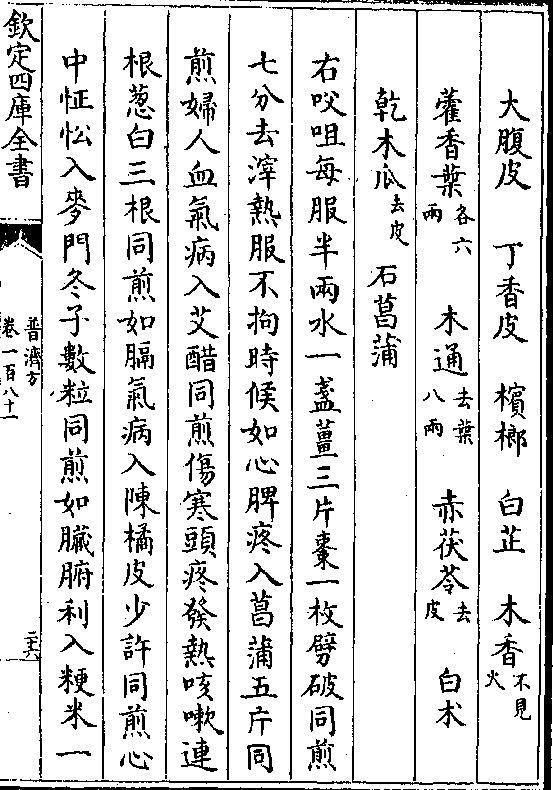 大腹皮　丁香皮　檳榔　白芷　木香不見火
藿香葉各六兩　木通去葉八兩　赤茯苓去皮　白术
乾木瓜去皮　石菖蒲
右㕮咀每服半兩水一盞薑三片棗一枚劈破同煎
七分去滓熱服不拘時候如心脾疼入菖蒲五片同
煎婦人血氣病入艾醋同煎傷寒頭疼發熱咳嗽連
根葱白三根同煎如膈氣病入陳橘皮少許同煎心
中怔忪入麥門冬子數粒同煎如臟腑利入粳米一
欽定四庫全書
普濟方
卷一百八十一
二六